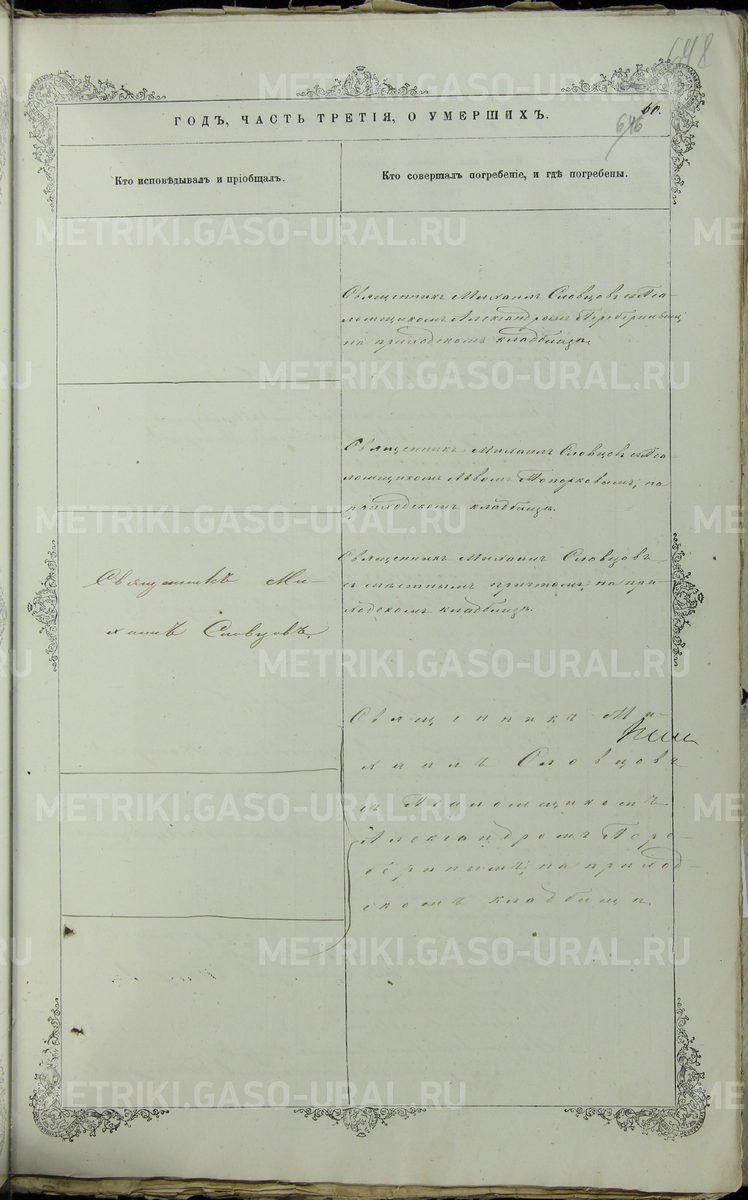 648
646
60.
ГОДЪ, ЧАСТЬ ТРЕТІЯ, О УМЕРШИХЪ.
Кто исповѣдывалъ и пріобщалъ.
Кто совершалъ погребеніе, и гдѣ погребены.
Священникъ Михаилъ Словцовъ съ Пса-
ломщикомъ Александромъ
на приходскомъ кладбищѣ.
Священникъ Михаилъ Словцовъ съ Пса-
ломщикомъ Львомъ Топорковымъ, на
приходскомъ кладбищѣ.
Священникъ Ми-
хаилъ Словцовъ.
Священникъ Михаилъ Словцовъ
съ мѣстнымъ причтомъ, на при-
ходскомъ кладбищѣ.
Священникъ Ми-
хаилъ Словцовъ
съ Псаломщикомъ
Александромъ Пере-
беринымъ, на приход-
скомъ кладбищѣ.
METRIKI.GASO-URAL.RU